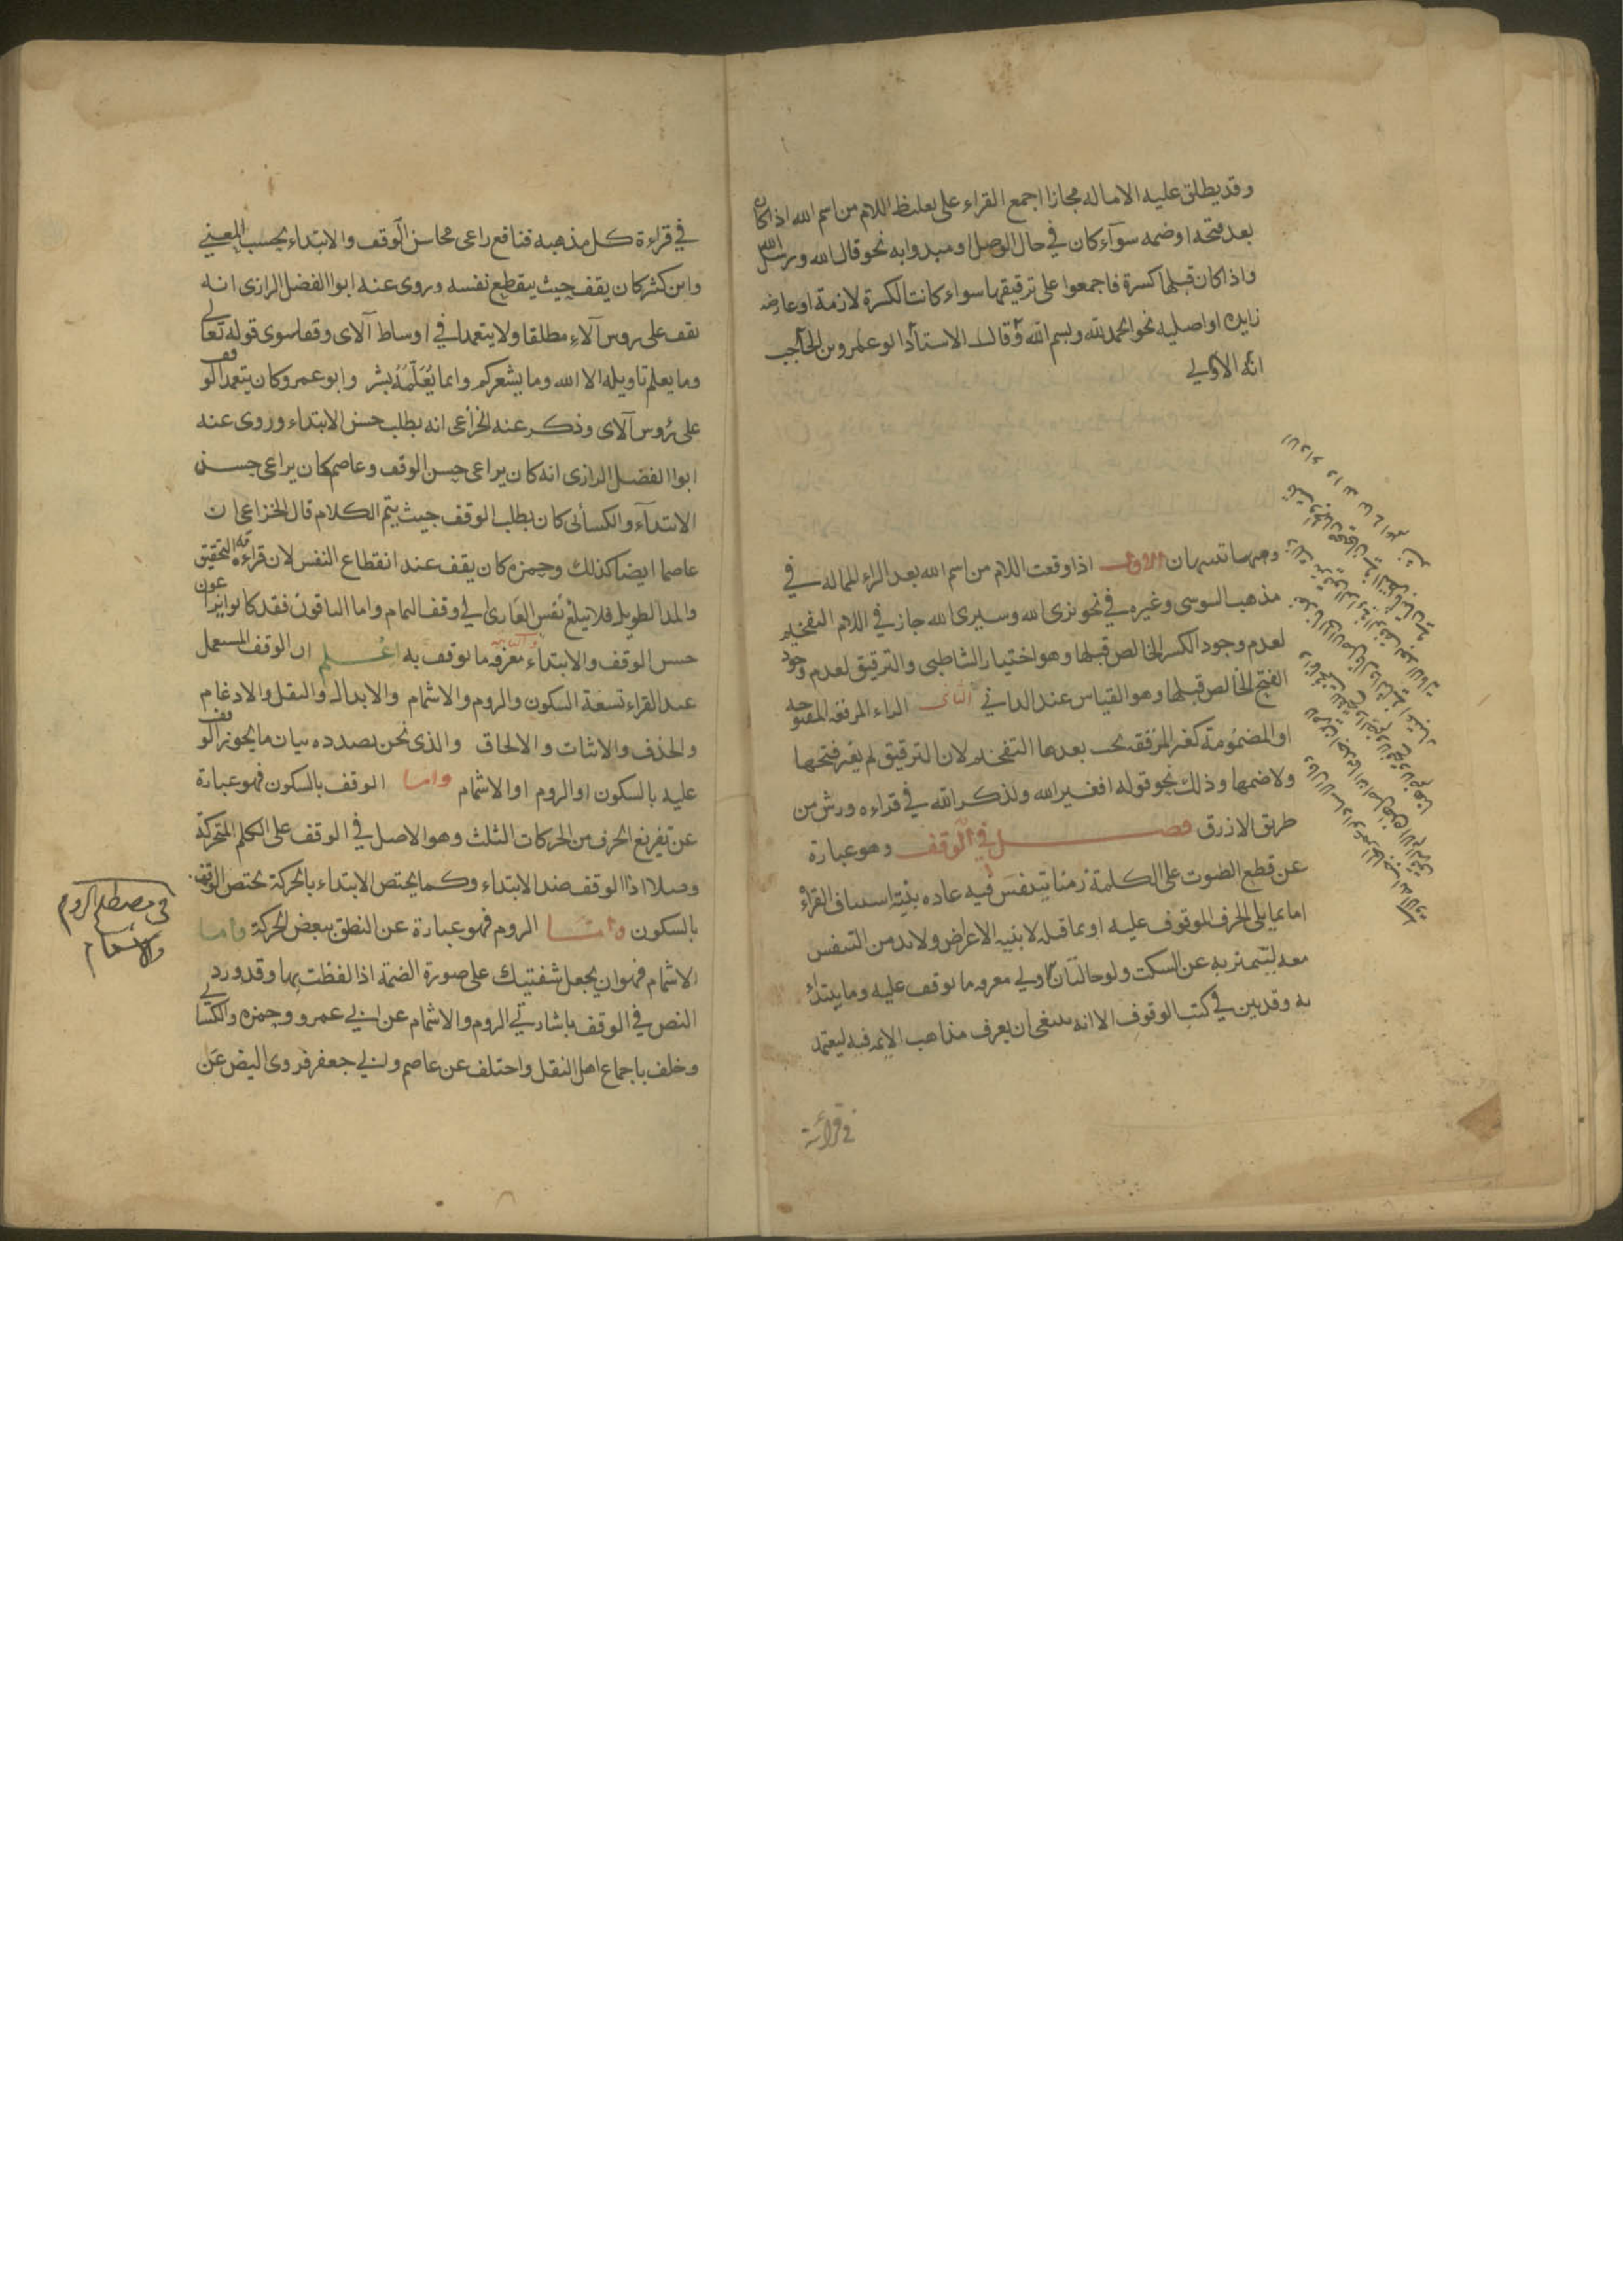 وقد يطلق عليه الاماله مجازا اجمع القراء على تغليظ اللام من اسم الله اذا كان
بعد فتحه او ضمه سوآء كان في حال الوصل او مبدوا به نحو قال الله ورسل الله
واذا كان قبلها كسرة فاجمعوا على ترقيقها سواء كانت الكسرة لازمة او عارضه
زايده او اصليه نحو الحمد لله وبسم الله وقال الاستاذ ابو عمرو بن الحاجب
انه الاولى
وههنا تنبيهان الاول اذا وقعت اللام من اسم الله بعد الراء الممالة في
مذهب السوسى وغيره في نحو نرى الله وسيرى الله جاز في اللام التفخيم
لعدم وجود الكسر الخالص قبلها وهو اختيار الشاطبى والترقيق لعدم وجود
الفتح الخالص قبلها وهو القياس عند الداني الثانى الراء المرققه المفتوحه
او المضمومة كغير المرققه يجب بعدها التفخيم لان الترقيق لم يغير فتحها
ولا ضمها وذلك نحو قوله افغير الله ولذكر الله في قراءه ورش من
طريق الازرق فصل في الوقف وهو عبارة
عن قطع الصوت على الكلمة زمنا يتنفس فيه عاده بنية استيناف القراءة
اما بما يلى الحرف الموقوف عليه او بما قبله لا بنيه الاعراض ولابد من التنفس
معه ليتميز به عن السكت ولو حالتان اولى معرفه ما يوقف عليه وما يبتدأ
به وقد بين في كتب الوقوف الا انه ينبغى ان يعرف مذاهب الايمه فيه ليعتمد
في قرائة
في قراءة كل مذهبه فنافع راعى محاسن الوقف والابتداء بحسب المعني
وابن كثير كان يقف حيث ينقطع نفسه وروى عنه ابوا الفضل الرازى انه
يقف على روس الآى مطلقا ولا يتعمد في اوساط الآى وقفا سوى قوله تعالى
وما يعلم تاويله الا الله وما يشعركم وانما يُعَلّمُهُ بشر وابو عمرو كان يتعمد الوقف
على رؤس الآى وذكر عنه الخزاعى انه يطلب حسن الابتداء وروى عنه
ابوا الفضل الرازى انه كان يراعى حسن الوقف وعاصم كان يراعى حسن
الابتدآء والكسائى كان يطلب الوقف حيث يتم الكلام قال الخزاعى ان
عاصما ايضا كذلك وحمزه كان يقف عند انقطاع النفس لان قراءته التحقيق
والمد الطويل فلا يبلغ نفس القارئ الى وقف التمام واما الباقون فقد كانوا يراعون
حسن الوقف والابتداء والثانيه معرفه ما يوقف به اعلم ان الوقف المستعمل
عند القراء تسعة السكون والروم والاشمام والابدال والنقل والادغام
والحذف والاثبات والالحاق والذى نحن بصدده بيان ما يجوز الوقف
عليه بالسكون او الروم او الاشمام واما الوقف بالسكون فهو عبارة
عن تفريغ الحرف من الحركات الثلث وهو الاصل في الوقف على الكلم المتحركة
وصلا اذا الوقف ضد الابتداء وكما يختص الابتداء بالحركة يختص الوقف
بالسكون وامّا الروم فهو عبارة عن النطق ببعض الحركة واما
الاشمام فهو ان يجعل شفتيك على صورة الضمّة اذا لفظت بها وقد ورد
النص في الوقف باشارتي الروم والاشمام عن ابي عمرو وحمزه والكسائى
وخلف باجماع اهل النقل واختلف عن عاصم وابي جعفر فروى النص عن
في مصطلح الروم
والاشمام